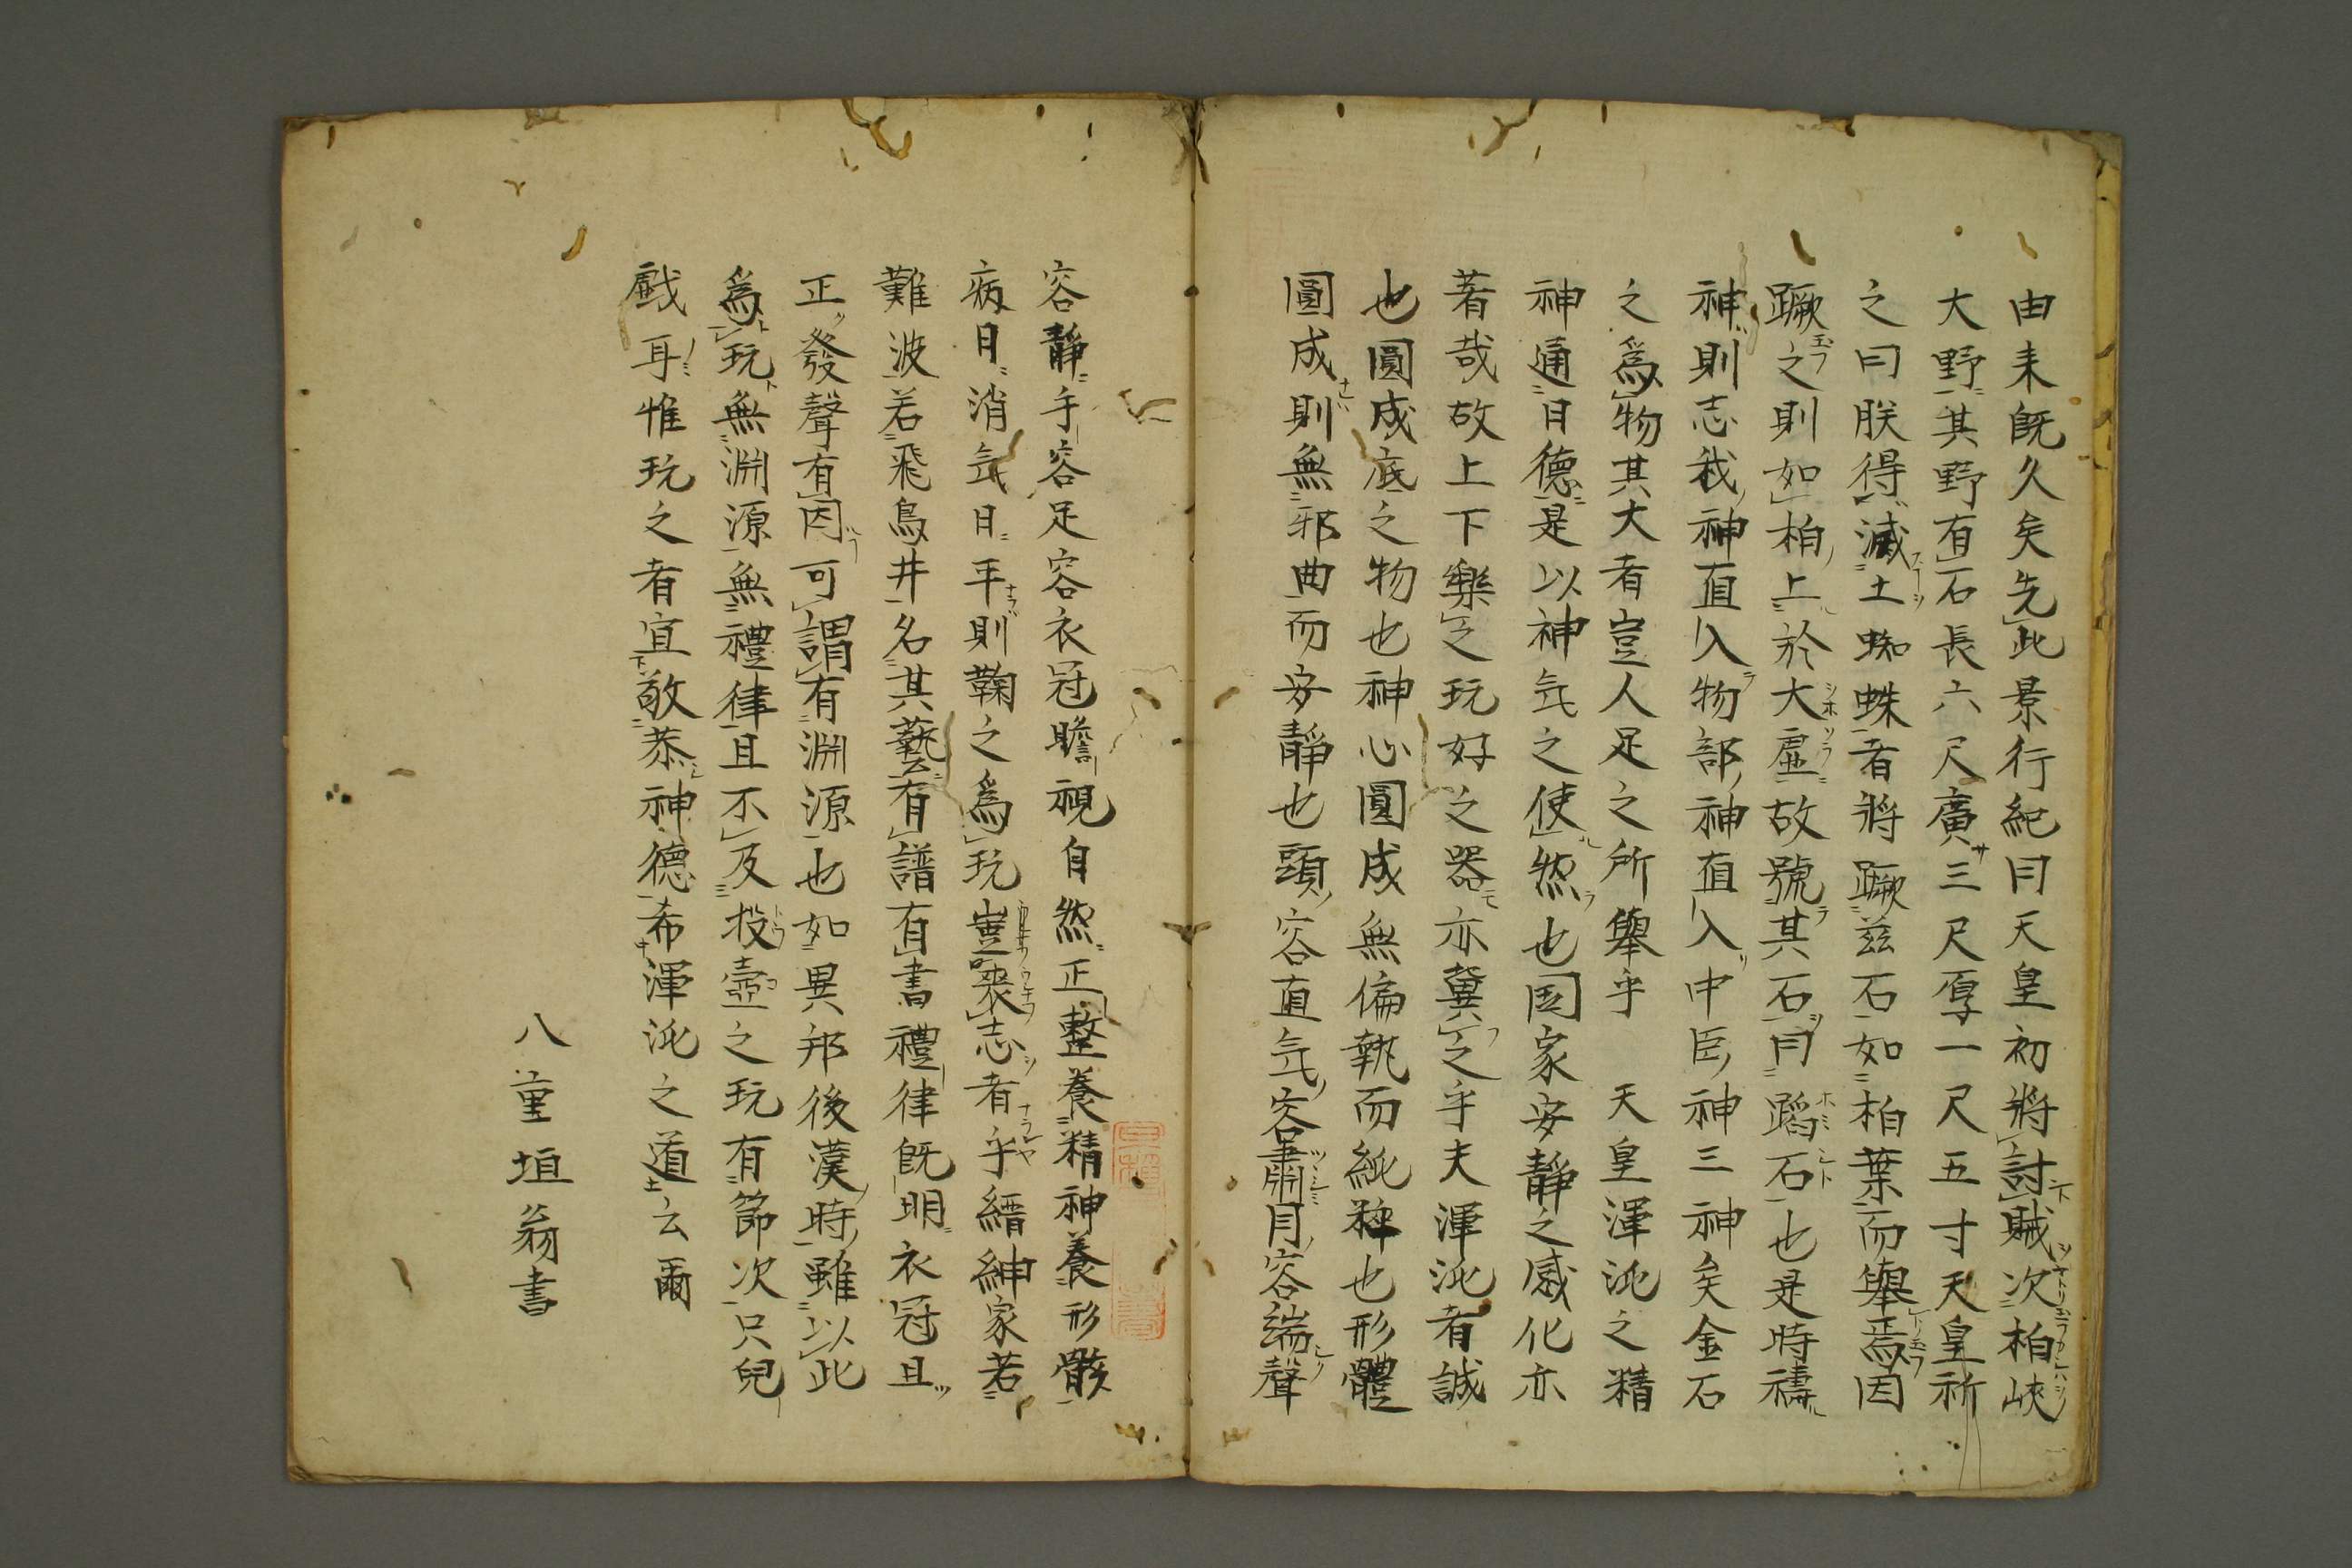 由来既久矣先此景行紀曰天皇初將討賊次柏峽
大野其野有石長六尺廣三尺厚一尺五寸天皇祈
之曰朕得滅土蜘蛛者將蹶茲石如柏葉而舉焉因
蹶之則如柏上於大虛故號其石曰蹈石也是時禱
神則志我神直入物部神直入中臣神三神矣金石
之爲物其大者豈人足之所舉乎 天皇渾沌之精
神通日德是以神気之使然也国家安靜之感化亦
著哉故上下樂之玩好之器亦冀之乎夫渾沌者誠
也圓成底之物也神心圓成無偏執而純粹也形體
圓成則無邪曲而安靜也頭容直気容肅目容端聲
容靜手容足容衣冠瞻視自然正整養精神養形骸
病日消気日平則鞠之爲玩豈喪志者乎縉紳家若
難波若飛鳥井名其藝有譜有書禮律既明衣冠且
正發聲有因可謂有淵源也如異邦後漢時雖以此
爲玩無淵源無禮律且不及投壺之玩有節次只兒
戱耳惟玩之者宜敬恭神德希渾沌之道云爾
八重垣翁書